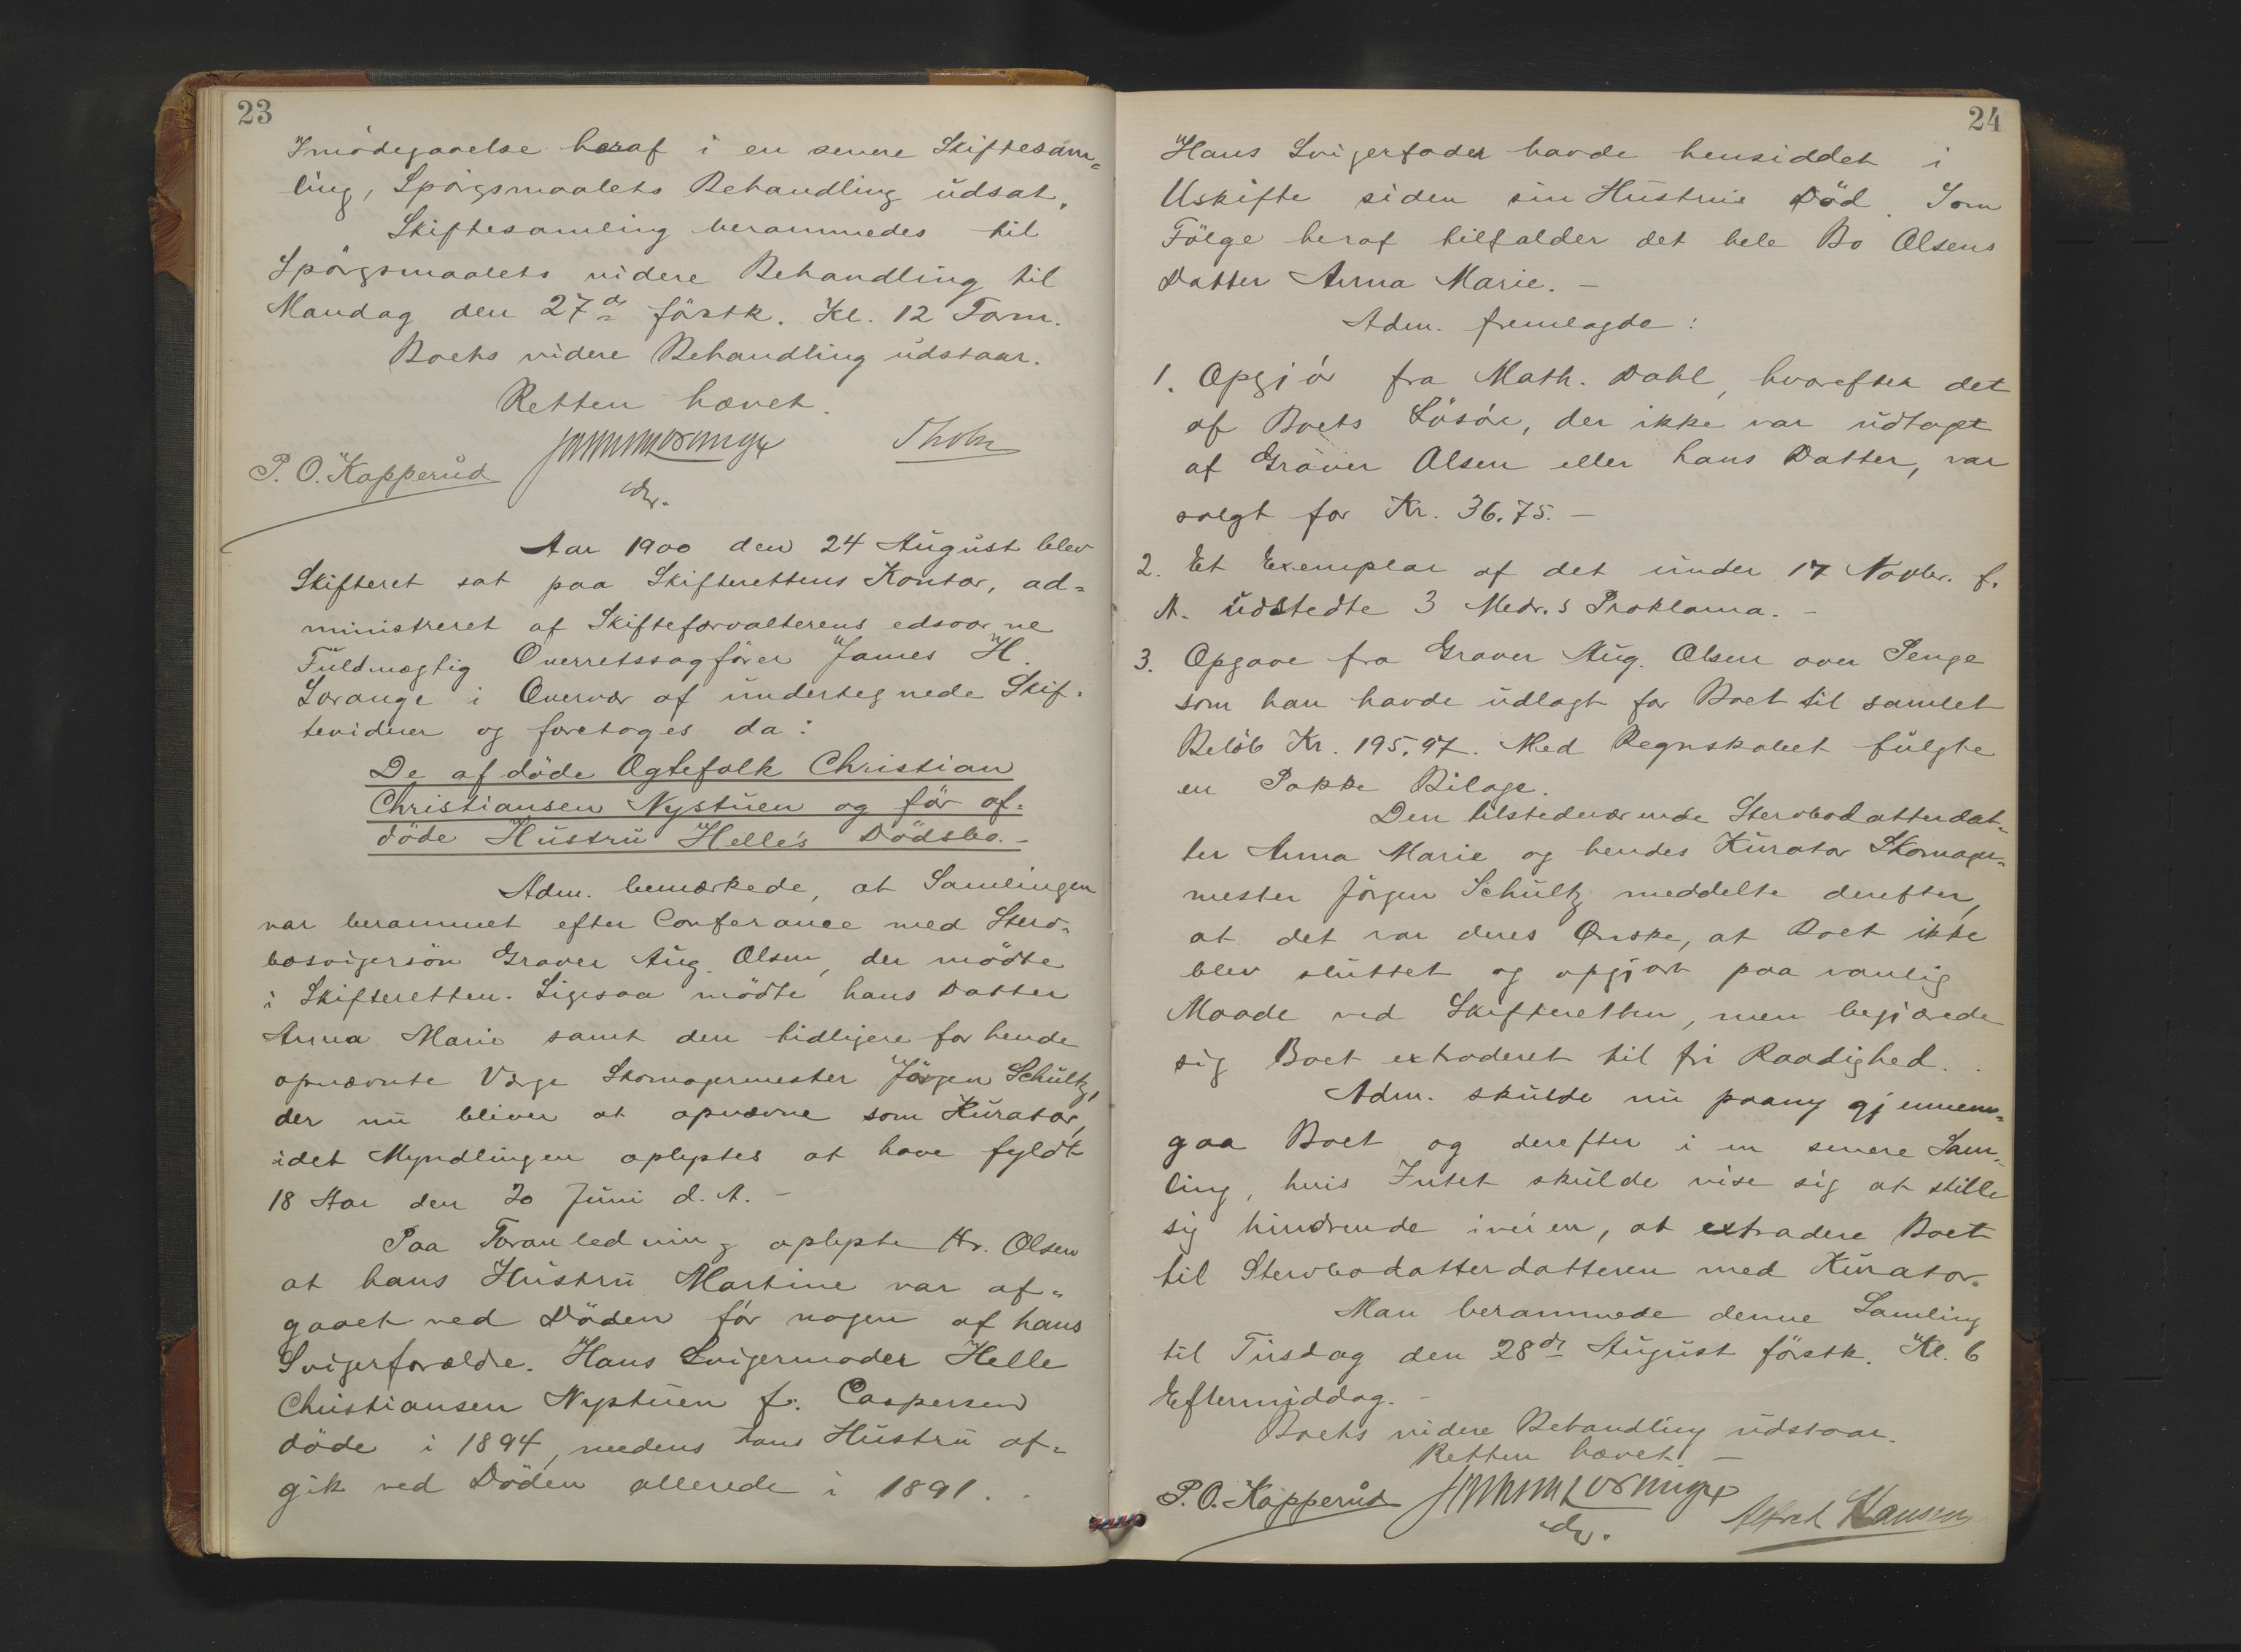 23
Imödegaaelse heraf i en senere Skiftesam=
ling, Spörgsmaalets Behandling udsat.
Skiftesamling berammedes til
Spörgsmaalets videre Behandling til
Mandag den 27de förstk. Kl. 12 Form.
Boets videre Behandling udstaar.
Retten hævet.
P. O. Kapperud
Aar 1900 den 24 August blev
Skifteret sat paa Skifterettens Kontor, ad=
ministreret af Skifteforvalterens edsvorne
Fuldmægtig Overretssagförer James H.
Lorange i Overvær af undertegnede Skif=
tevidner og foretoges da:
De afdöde Ægtefolk Christian
Christiansen Nystuen og för af=
döde Hustru Helle's Dödsbo. -
Adm. bemærkede, at Samlingen
var berammet efter Conferance med Sterv=
bosvigersön Graver Aug. Olsen, der mödte
i Skifteretten. Ligesaa mödte hans Datter
Anna Marie samt den tidligere for hende
opnævnte Værge Skomagermester Jörgen Schultz,
der nu bliver at opnævne som Kurator,
idet Myndlingen oplystes at have fyldt
18 Aar den 20 Juni d. A. -
Paa Foranledning oplyste Hr. Olsen
at hans Hustru Martine var af=
gaaet ved Döden för nogen af hans
Svigerforældre. Hans Svigermoder Helle
Christiansen Nystuen f. Caspersen
döde i 1894, medens hans Hustru af=
gik ved Döden allerede i 1891. -
24
Hans Svigerfader havde hensiddet i
Uskifte siden sin Hustrus Död. Som
Fölge heraf tilfalder det hele Bo Olsens
Datter Anna Marie. -
Adm. fremlagde:
1. Opgjör fra Math. Dahl, hvorefter det
af Boets Lösöre, der ikke var udtaget
af Graver Olsen eller hans Datter, var
solgt for Kr. 36.75. -
2. Et Exemplar af det under 17 Novbr. f.
A. udstedte 3 Mdr.s Proklama. -
3. Opgave fra Graver Aug. Olsen over Penge
som han havde udlagt for Boet til samlet
Belöb Kr. 195.97. Med Regnskabet fulgte
en Pakke Bilage.
Den tilstedeværende Stervbodatterdat=
ter Anna Marie og hendes Kurator Skomager=
mester Jörgen Schultz meddelte derefter,
at det var deres Ønske, at Boet ikke
blev sluttet og opgjort paa vanlig
Maade ved Skifteretten, men begjærede
sig Boet extraderet til fri Raadighed.
Adm. skulde nu paany gjennem=
gaa Boet og derefter i en senere Sam=
ling, hvis Intet skulde vise sig at stille
sig hindrende iveien, at extradere Boet
til Stervbodatterdatteren med Kurator.
Man berammede denne Samling
til Tirsdag den 28de August förstk. Kl. 6
Eftermiddag. -
Boets videre Behandling udstaar.
Retten hævet. -
P. O. Kapperud James H Lorange Alfred Hansen
edsv.